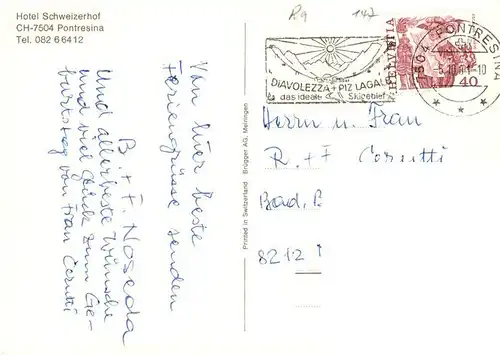 Hotel Schweizerhof
CH-7504 Pontresina
Tel. 082 6 64 12
Von hier beste
Feriengrüsse senden
B. + F. Noseda
Und allerbeste Wünsche
und viel Glück zum Ge-
burtstag von Frau Corsitti
Printed in Switzerland Brügger AG, Meiringen
R9 142
DIAVOLEZZA + PIZ LAGALB
das ideale Skigebiet
HELVETIA
40
7504 PONTRESINA
Herrn u. Frau
R. + F Corsitti
Bad. B
8212